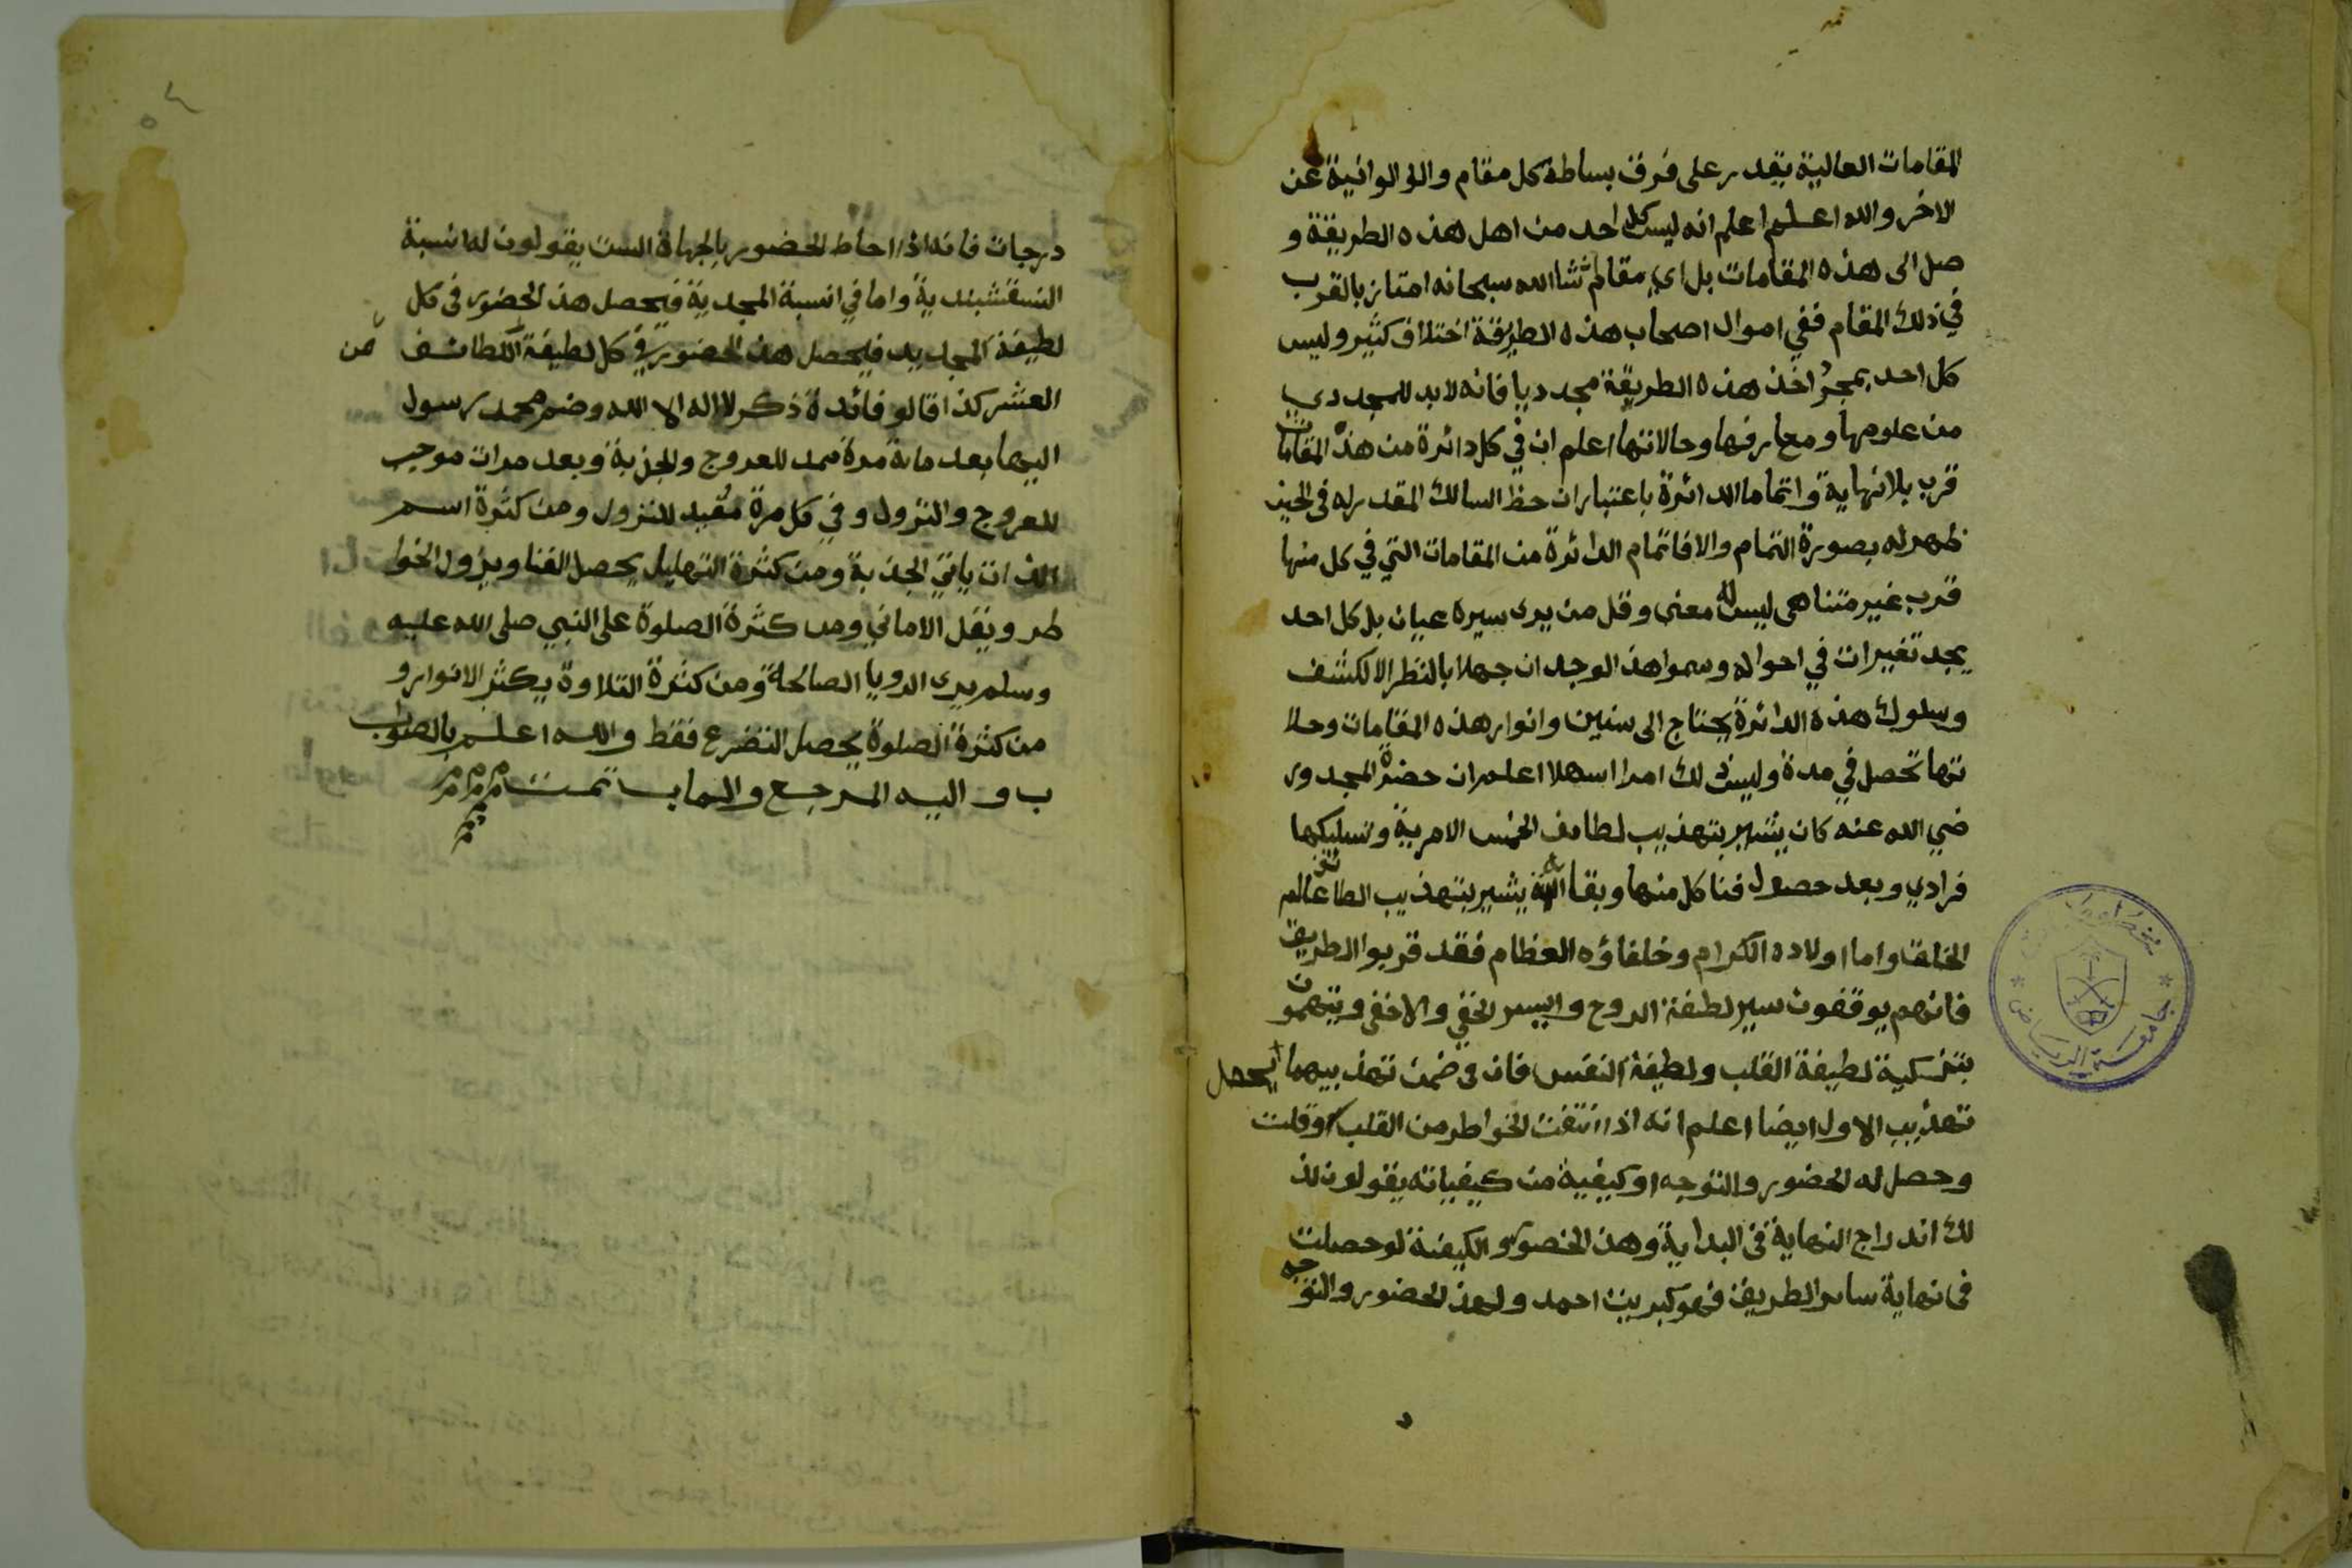 المقامات العالية يقدر على فرق بساطة كل مقام والو الوانية عن
الاخر والله اعلم اعلم انه ليس كل احد من اهل هذه الطريقة و
صل الى هذه المقامات بل اي مقام شا الله سبحانه امتاز بالقرب
في ذلك المقام ففي اموال اصحاب هذه الطريقة اختلاف كثير وليس
كل احد بمجرد اخذ هذه الطريقة مجدديا فانه لابد للمجددي
من علومها ومعارفها وحالاتها اعلم ان في كل دائرة من هذه المقامات
قرب بلا نهاية واتماما الدائرة باعتبار ان حظ السالك المقدر له في الحين
ظهر له بصورة التمام والا فاتمام الدائرة من المقامات التي في كل منها
قرب غير متناهى ليس له معنى وقل من يرى سيره عيان بل كل احد
يجد تغيرات في احواله وسموا هذ الوجدان جهلا بالنظر الا لكشف
وسلوك هذه الدائرة يحتاج الى سنين وانوار هذه المقامات وحالا
تها تحصل في مدة وليس ذلك امرا سهلا اعلم ان حضرة المجدد ر
ضي الله عنه كان يشير بتهذيب لطايف الخمس الامرية وتسليكها
فرادي وبعد حصول فنا كل منها وبقا يشير بتهذيب الطا عالم
الخلق واما اولاده الكرام وخلفاؤه العظام فقد قربوا الطريق
فانهم يوقفون سير لطفة الروح والسر الخفي والاخفى ويتهمون
بتزكية لطيفة القلب ولطيفة النفس فان فى ضمن تهذيبهما يحصل
تهذيب الاول ايضا اعلم انه اذا انتفت الخواطر من القلب او قلت
وحصل له الحضور والتوجه او كيفية من كيفياته يقولون لذ
لك اندراج النهاية فى البداية وهذ الحضور والكيفية لو حصلت
فى نهاية ساير الطريق فهو كبريت احمد ولهذ الحضور والتوجه
درجات فانه اذا احاط الحضور بالجهاة الست يقولون له نسبة
النسقشبندية واما في انسبة المجدية فيحصل هذ الحضور فى كل
لطيفة المجديه فيحصل هذ الحضور في كل لطيفة اللطائف من
العشر كذا قالو فائدة ذكر لا اله الا الله وضم محمد رسول
اليهما بعد مائة مرة ممد للعروج والجزبة وبعد مرات موجب
للعروج والنزول وفي كل مرة مقيد للنزول ومن كثرة اسم
الذات ياتي الجذبة ومن كثرة التهليل يحصل الفنا ويزول الخوا
طر ونقل الاماني ومن كثرة الصلوة على النبي صلى الله عليه
وسلم يرى الرويا الصالحة ومن كثرة التلاوة يكثر الانوار و
من كثرة الصلوة يحصل التضرع فقط والله اعلم بالصوا
ب واليه المرجع والماب تمت م م م
جامعة الرياض